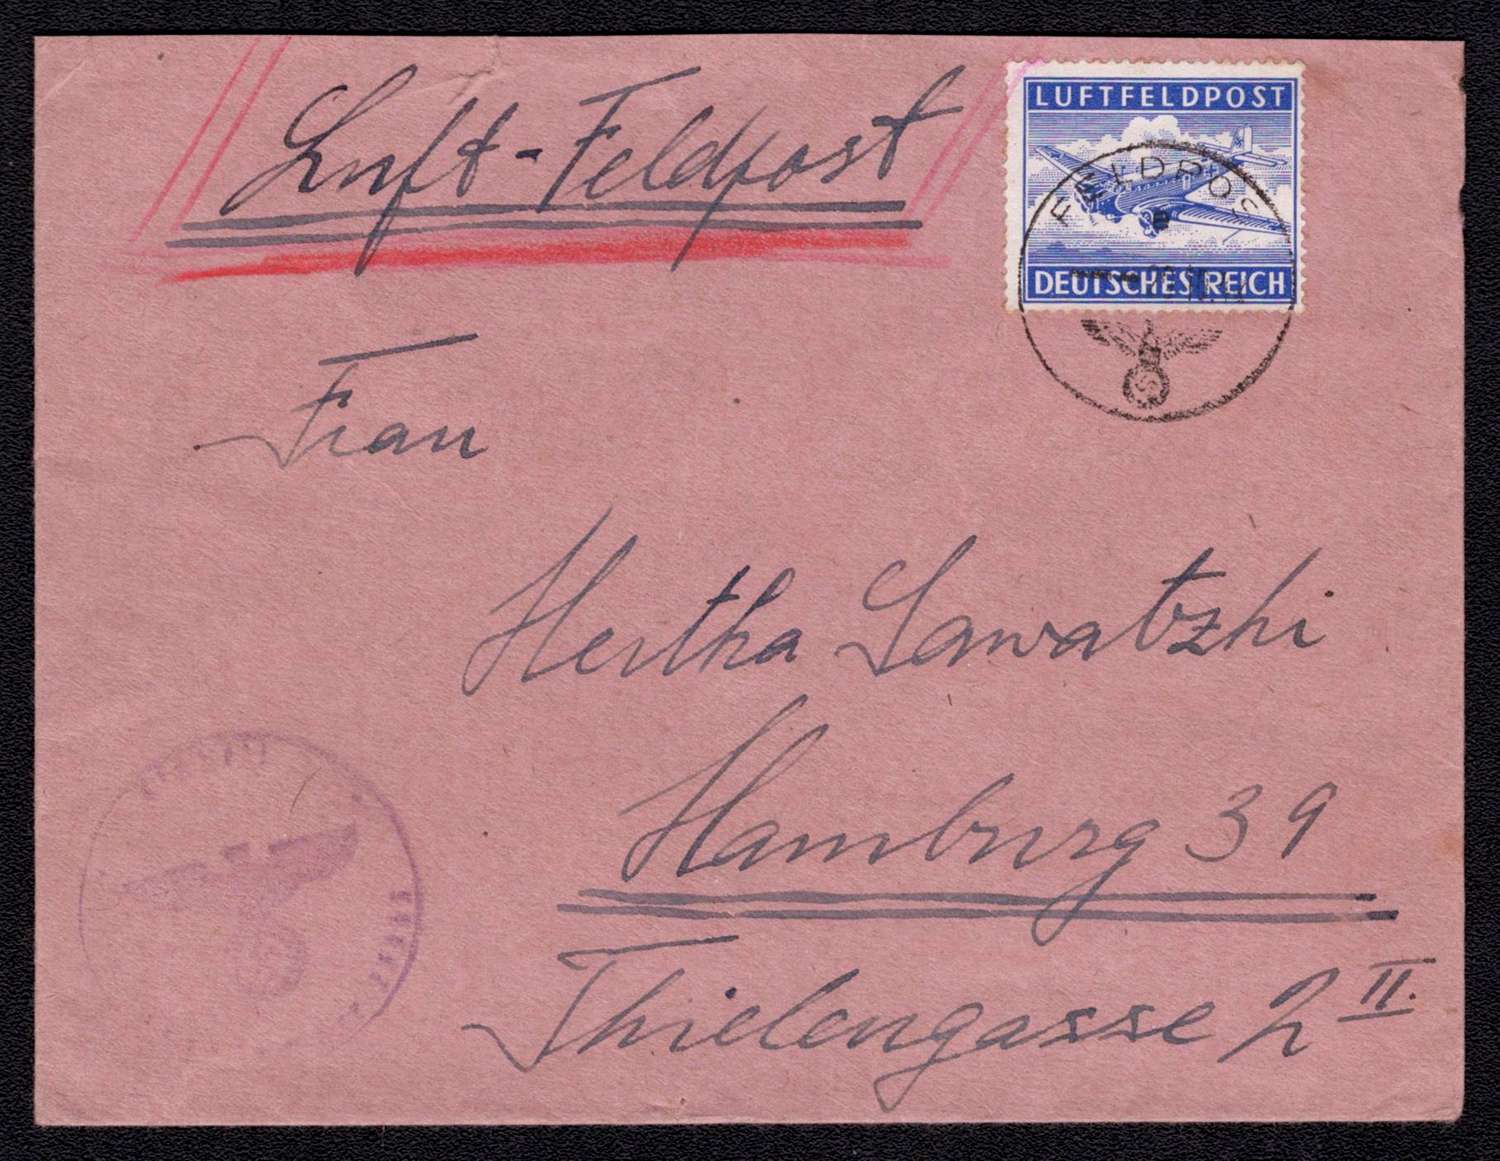 Luft-Feldpost
LUFTFELDPOST
DEUTSCHES REICH
FELDPOST
Frau
Hertha Sawatzki
Hamburg 39
Thielengasse 2 II.